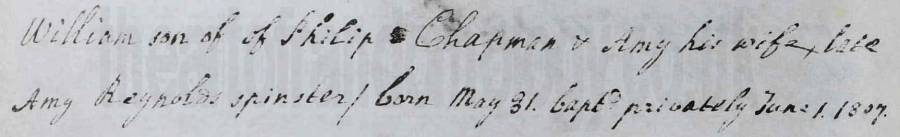 William son of of Philip Chapman & Amy his wife, late
Amy Reynolds spinster/ born May 31. bapt.d privately June 1. 1807.